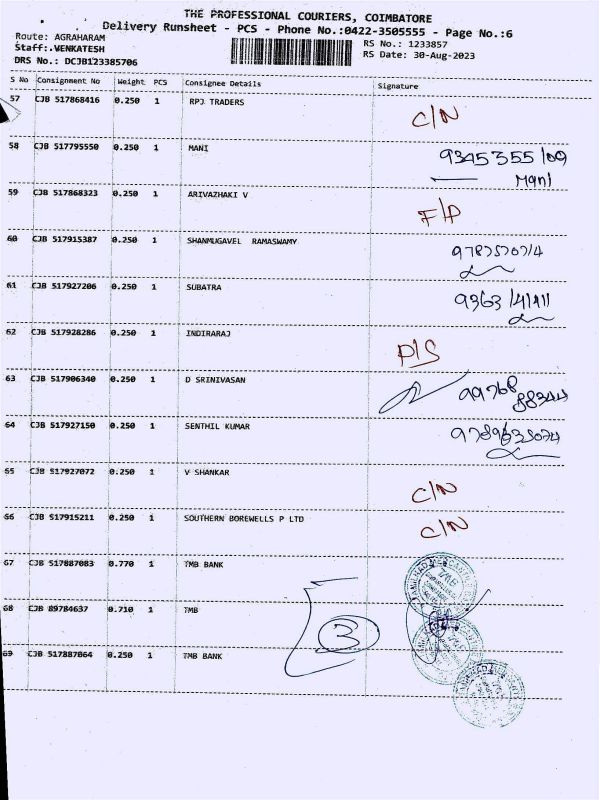 THE PROFESSIONAL COURIERS, COIMBATORE
Delivery Runsheet - PCS - Phone No.:0422-3505555 - Page No.:6
Route: AGRAHARAM
RS No.: 1233857
Staff:.VENKATESH
RS Date: 30-Aug-2023
DRS No.: DCJB123385706
S No Consignment No Weight PCS Consignee Details Signature
57 CJB 517868416 0.250 1 RPJ TRADERS C/N
58 CJB 517795550 0.250 1 MANI 9345355109
Mani
59 CJB 517868323 0.250 1 ARIVAZHAKI V F/D
60 CJB 517915387 0.250 1 SHANMUGAVEL RAMASWAMY
61 CJB 517927206 0.250 1 SUBATRA 9363141911
62 CJB 517928286 0.250 1 INDIRARAJ P/S
63 CJB 517906340 0.250 1 D SRINIVASAN 99768
88344
64 CJB 517927150 0.250 1 SENTHIL KUMAR
65 CJB 517927072 0.250 1 V SHANKAR C/N
66 CJB 517915211 0.250 1 SOUTHERN BOREWELLS P LTD C/N
67 CJB 517887083 0.770 1 TMB BANK
68 CJB 89784637 0.710 1 TMB 3
69 CJB 517887064 0.250 1 TMB BANK